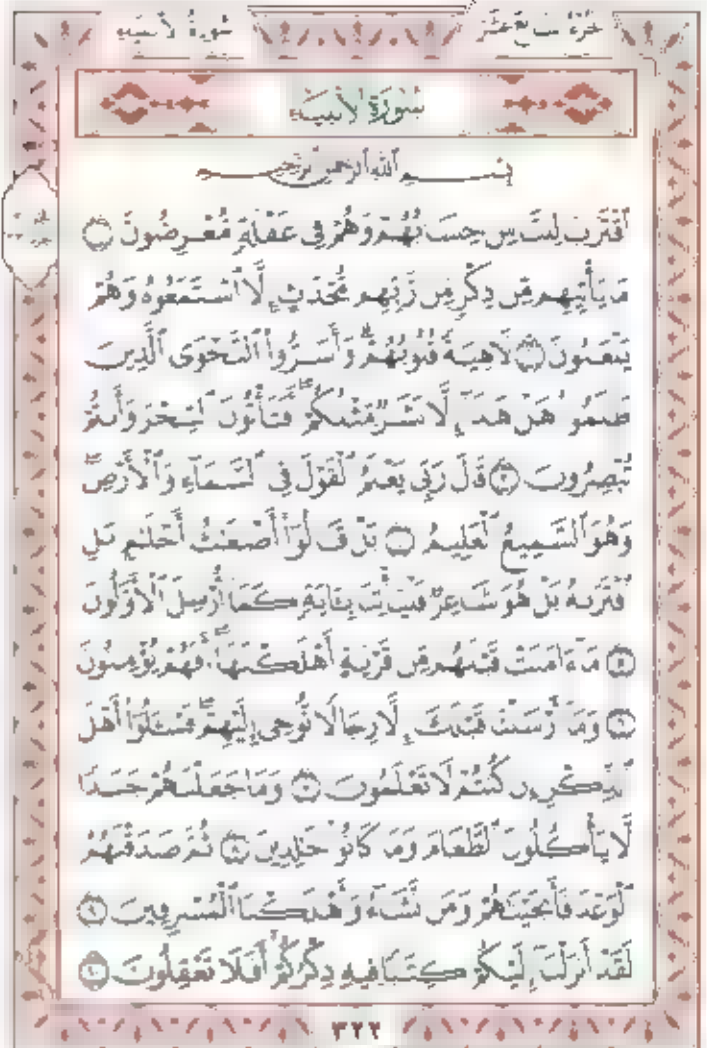 سورة الأنبياء
الجزء السابع عشر
سُورَةُ الأَنبِيَاءِ
بِسْمِ ٱللَّهِ ٱلرَّحْمَٰنِ ٱلرَّحِيمِ
ٱقْتَرَبَ لِلنَّاسِ حِسَابُهُمْ وَهُمْ فِى غَفْلَةٍ مُّعْرِضُونَ ١
مَا يَأْتِيهِم مِّن ذِكْرٍ مِّن رَّبِّهِم مُّحْدَثٍ إِلَّا ٱسْتَمَعُوهُ وَهُمْ
يَلْعَبُونَ ٢ لَاهِيَةً قُلُوبُهُمْ ۗ وَأَسَرُّوا۟ ٱلنَّجْوَى ٱلَّذِينَ
ظَلَمُوا۟ هَلْ هَٰذَآ إِلَّا بَشَرٌ مِّثْلُكُمْ ۖ أَفَتَأْتُونَ ٱلسِّحْرَ وَأَنتُمْ
تُبْصِرُونَ ٣ قَالَ رَبِّى يَعْلَمُ ٱلْقَوْلَ فِى ٱلسَّمَآءِ وَٱلْأَرْضِ ۖ
وَهُوَ ٱلسَّمِيعُ ٱلْعَلِيمُ ٤ بَلْ قَالُوٓا۟ أَضْغَٰثُ أَحْلَٰمٍۭ بَلِ
ٱفْتَرَىٰهُ بَلْ هُوَ شَاعِرٌ فَلْيَأْتِنَا بِـَٔايَةٍ كَمَآ أُرْسِلَ ٱلْأَوَّلُونَ
٥ مَآ ءَامَنَتْ قَبْلَهُم مِّن قَرْيَةٍ أَهْلَكْنَٰهَآ ۖ أَفَهُمْ يُؤْمِنُونَ
٦ وَمَآ أَرْسَلْنَا قَبْلَكَ إِلَّا رِجَالًا نُّوحِىٓ إِلَيْهِمْ ۖ فَسْـَٔلُوٓا۟ أَهْلَ
ٱلذِّكْرِ إِن كُنتُمْ لَا تَعْلَمُونَ ٧ وَمَا جَعَلْنَٰهُمْ جَسَدًا
لَّا يَأْكُلُونَ ٱلطَّعَامَ وَمَا كَانُوا۟ خَٰلِدِينَ ٨ ثُمَّ صَدَقْنَٰهُمُ
ٱلْوَعْدَ فَأَنجَيْنَٰهُمْ وَمَن نَّشَآءُ وَأَهْلَكْنَا ٱلْمُسْرِفِينَ ٩
لَقَدْ أَنزَلْنَآ إِلَيْكُمْ كِتَٰبًا فِيهِ ذِكْرُكُمْ ۖ أَفَلَا تَعْقِلُونَ ١٠
٣٢٢